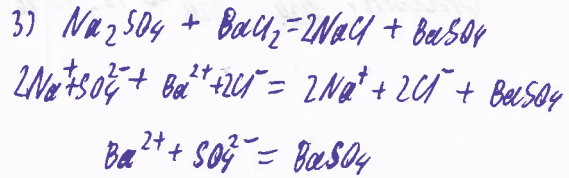 3) Na₂SO₄ + BaCl₂ = 2NaCl + BaSO₄
2Na⁺ + SO₄²⁻ + Ba²⁺ + 2Cl⁻ = 2Na⁺ + 2Cl⁻ + BaSO₄
Ba²⁺ + SO₄²⁻ = BaSO₄